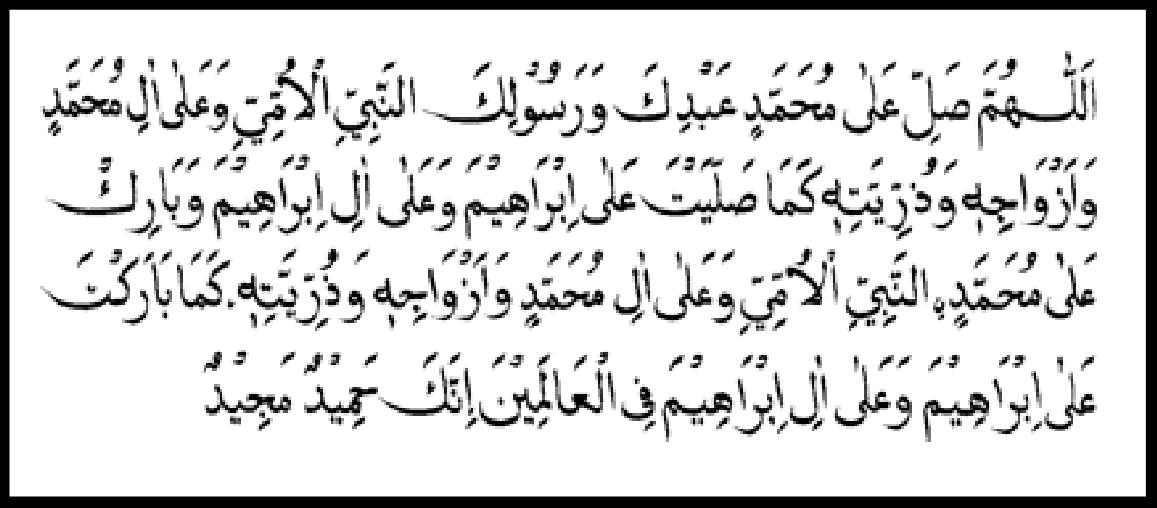 اَللّٰهُمَّ صَلِّ عَلٰى مُحَمَّدٍ عَبْدِكَ وَرَسُوْلِكَ النَّبِيِّ الْاُمِّيِّ وَعَلٰى اٰلِ مُحَمَّدٍ
وَاَزْوَاجِهٖ وَذُرِّيَّتِهٖ كَمَا صَلَّيْتَ عَلٰى اِبْرَاهِيْمَ وَعَلٰى اٰلِ اِبْرَاهِيْمَ وَبَارِكْ
عَلٰى مُحَمَّدٍ، النَّبِيِّ الْاُمِّيِّ وَعَلٰى اٰلِ مُحَمَّدٍ وَاَزْوَاجِهٖ وَذُرِّيَّتِهٖ. كَمَا بَارَكْتَ
عَلٰى اِبْرَاهِيْمَ وَعَلٰى اٰلِ اِبْرَاهِيْمَ فِى الْعَالَمِيْنَ اِنَّكَ حَمِيْدٌ مَجِيْدٌ